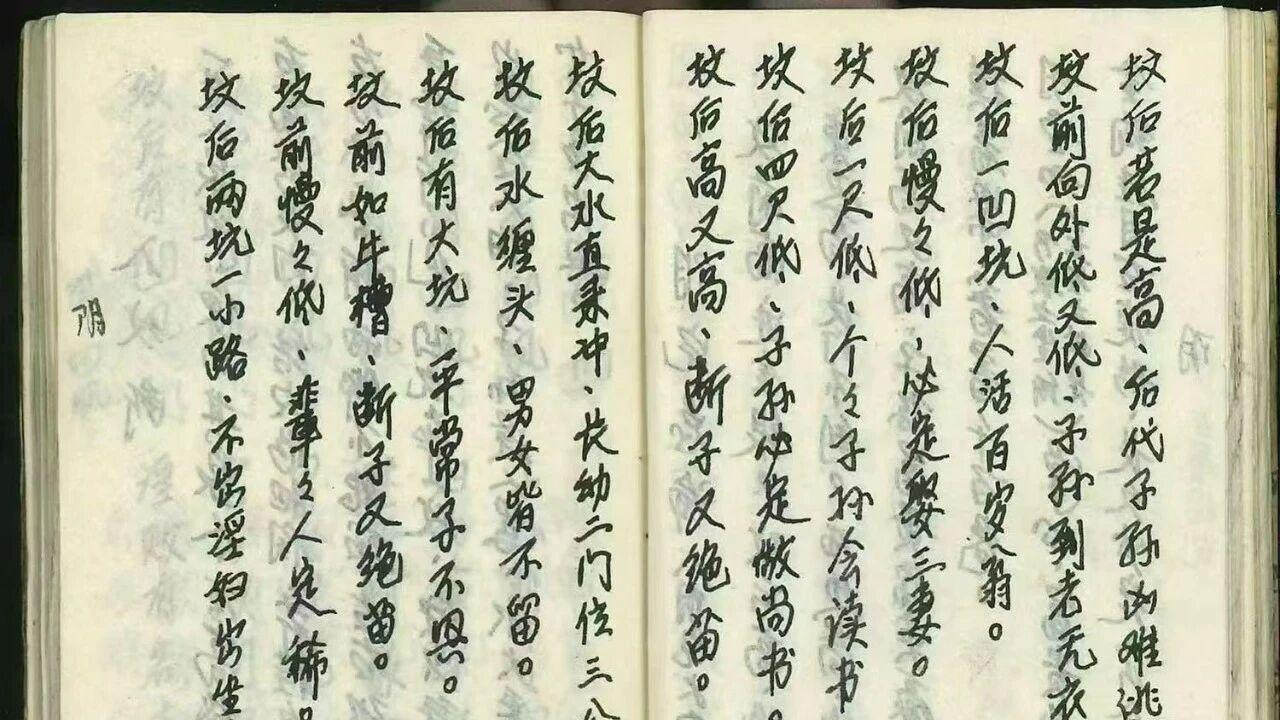 坟后若是高、后代子孙凶难逃
坟前向外低又低、子孙到老无衣
坟后一凹坑、人活百岁翁。
坟后慢々低、必定娶三妻。
坟后一尺低、个々子孙会读书
坟后四尺低、子孙必定做尚书。
坟后高又高、断子又绝苗。
坟后大水直来冲、长幼二门位三公
坟后水缠头、男女皆不留。
坟后有大坑、平常子不恩。
坟前如牛槽、断子又绝苗。
坟前慢々低、辈々人定稀。
坟后两坑一小路、不出淫妇出生
阴